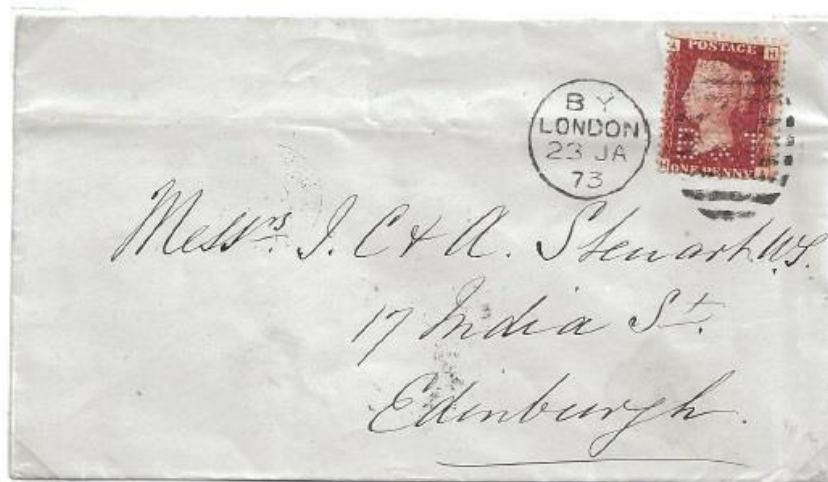 A POSTAGE H
H ONE PENNY A
BY
LONDON
23 JA
73
Messrs. J. C & A. Steuart W.S.
17 India St.
Edinburgh.